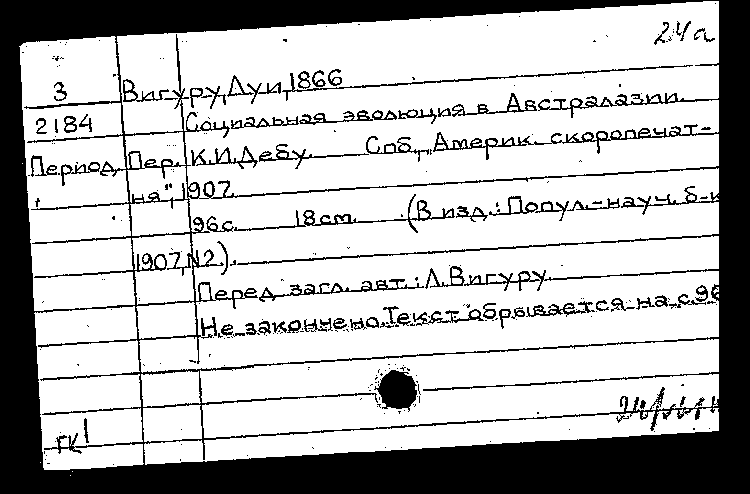 24а
3 Вигуру, Луи, 1866
2184 Социальная эволюция в Австралазии.
Период. Пер. К.И.Дебу. Спб., „Америк. скоропечат-
ня", 1907.
96с. 18см. (В изд.: Попул.-науч. б-к
1907, N2).
Перед загл. авт.: Л.Вигуру.
Не закончено. Текст обрывается на с.96
ГК!